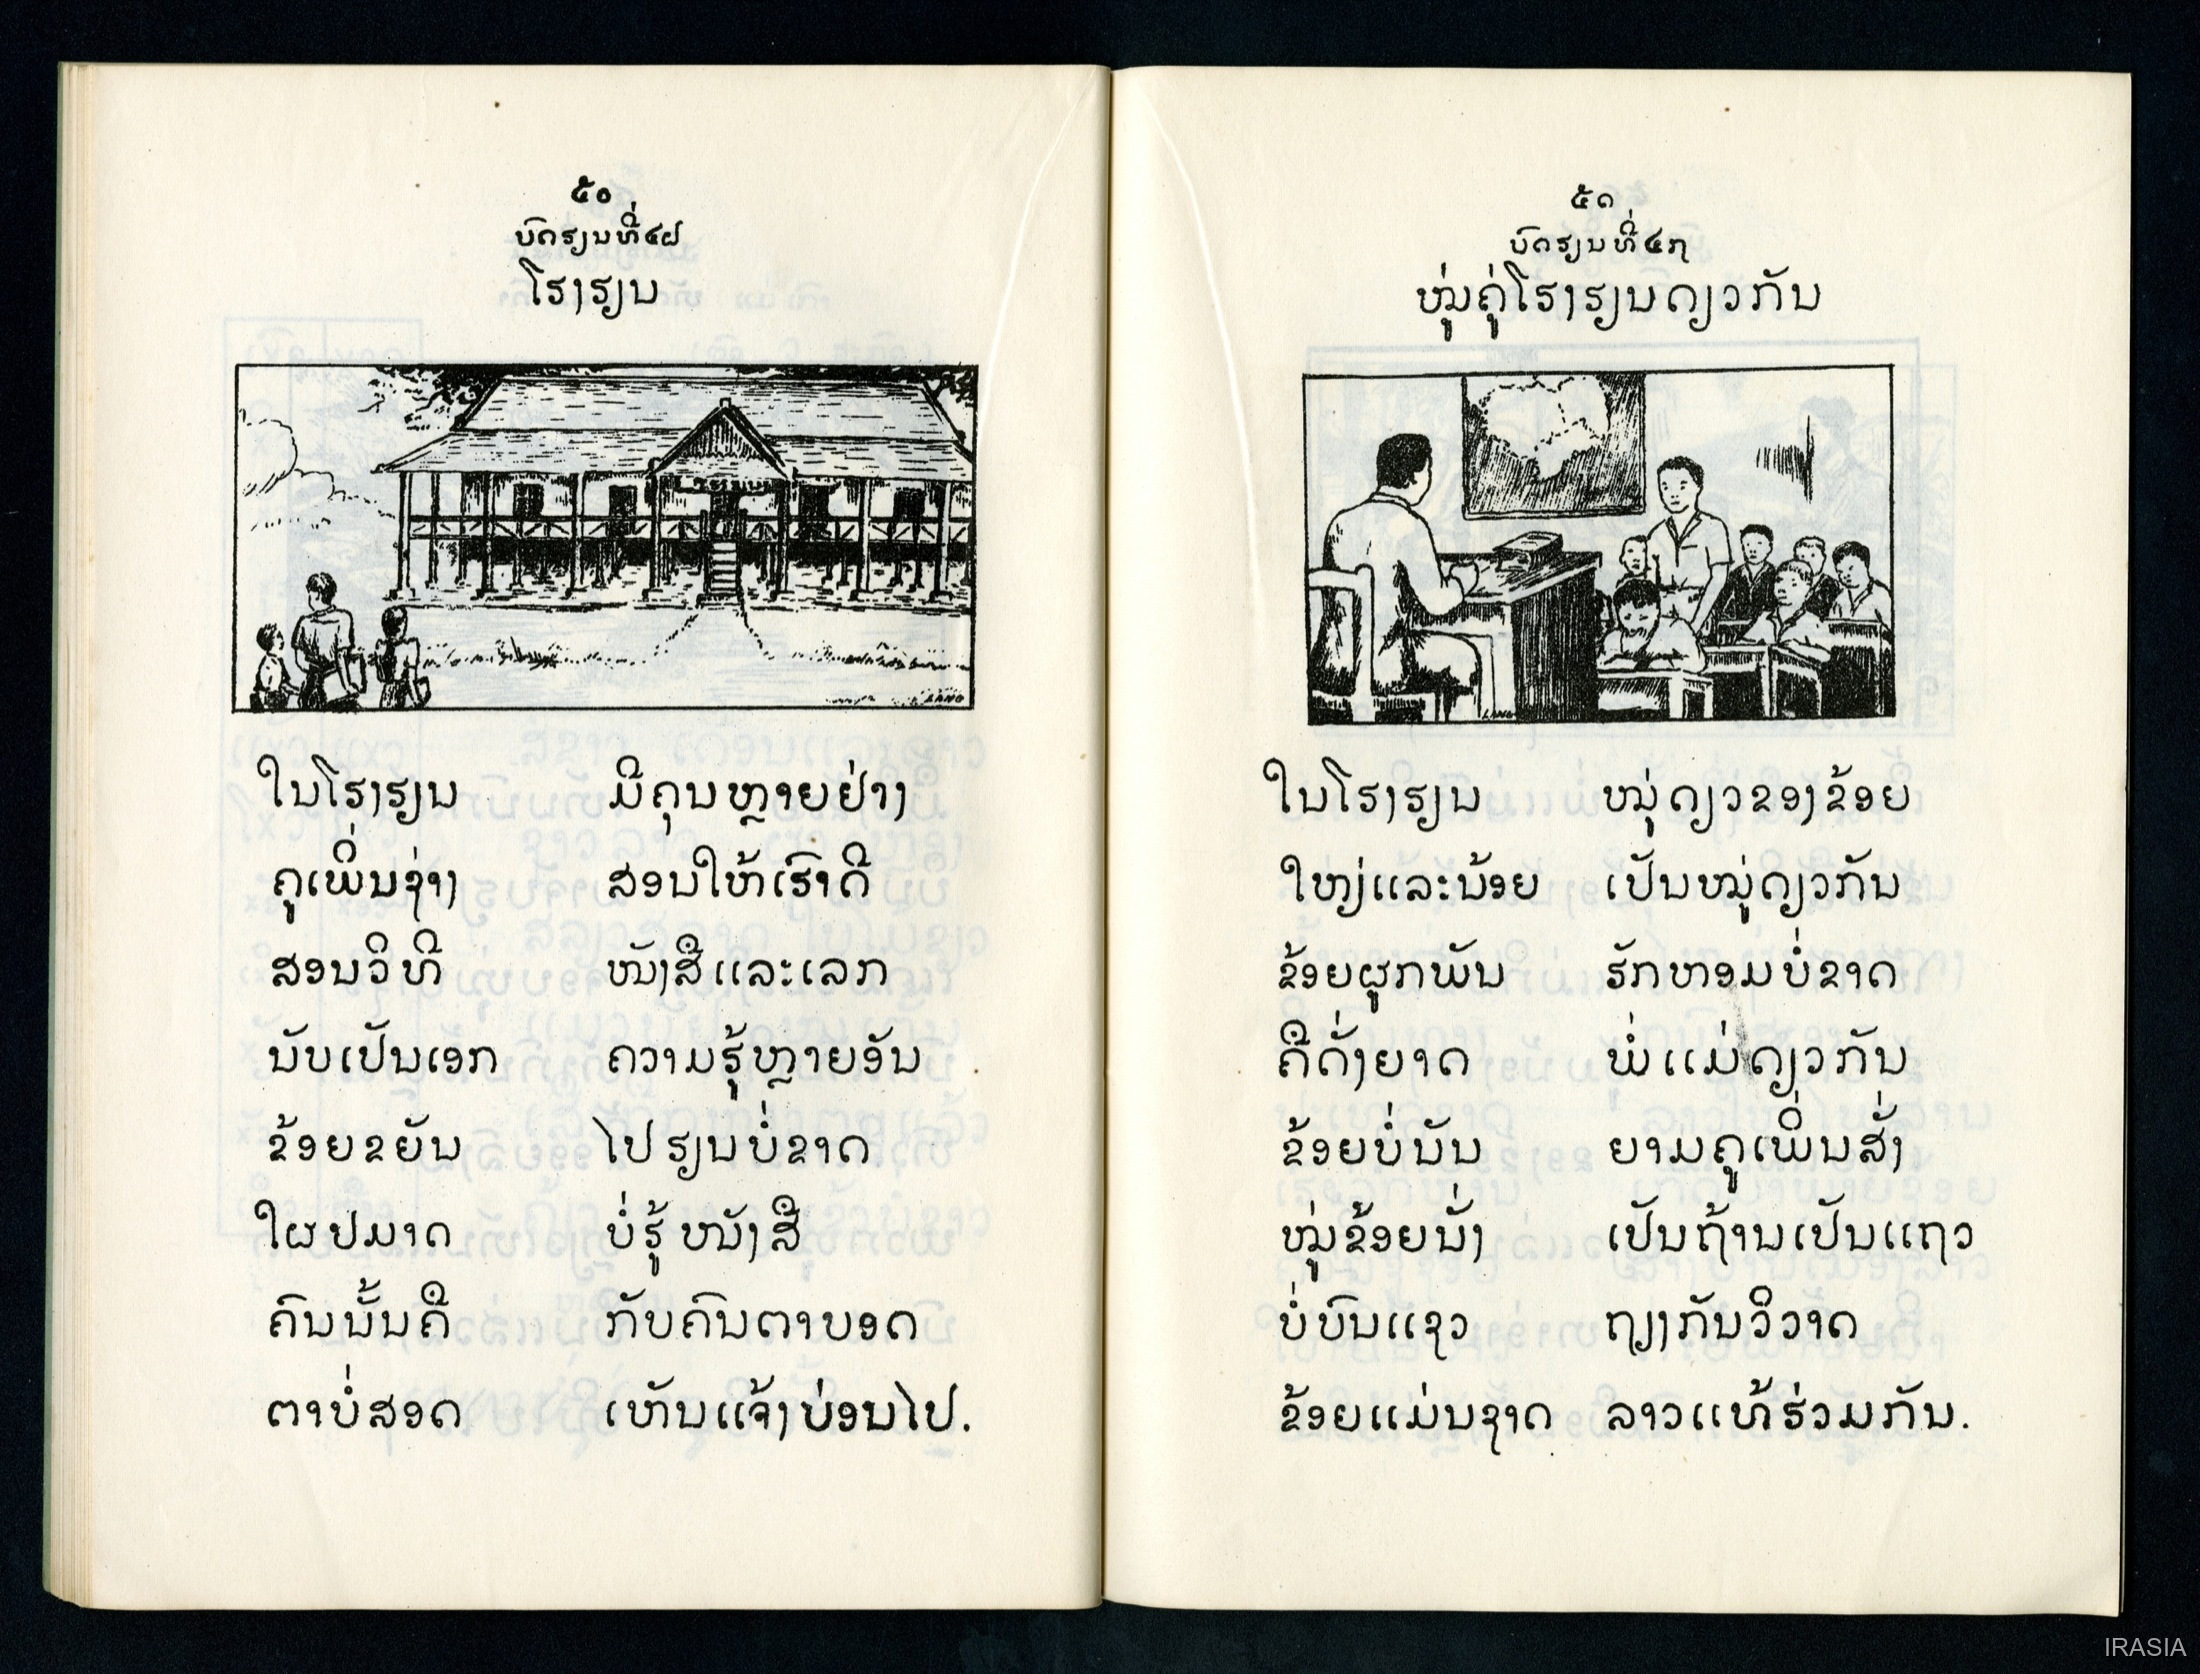 ໕໐
ບົດຮຽນທີ່໔໖
ໂຮງຮຽນ
ໃນໂຮງຮຽນ ມີຄຸນຫຼາຍຢ່າງ
ຄູເພິ່ນຊ່າງ ສອນໃຫ້ເຮົາດີ
ສອນວິທີ ໜັງສືແລະເລກ
ນັບເປັນເອກ ຄວາມຮູ້ຫຼາຍອັນ
ຂ້ອຍຂຍັນ ໄປຮຽນບໍ່ຂາດ
ໃຜປມາດ ບໍ່ຮູ້ໜັງສື
ຄົນນັ້ນຄື ກັບຄົນຕາບອດ
ຕາບໍ່ສອດ ເຫັນແຈ້ງບ່ອນໄປ.
LANO
໕໑
ບົດຮຽນທີ່໔໗
ໝູ່ຄູ່ໂຮງຮຽນດຽວກັນ
LANO
ໃນໂຮງຮຽນ ໝູ່ດຽວຂອງຂ້ອຍ
ໃຫຽ່ແລະນ້ອຍ ເປັນໝູ່ດຽວກັນ
ຂ້ອຍຜູກພັນ ຮັກຫອມບໍ່ຂາດ
ຄືດັ່ງຍາດ ພໍ່ແມ່ດຽວກັນ
ຂ້ອຍບໍ່ນັນ ຍາມຄູເພິ່ນສັ່ງ
ໝູ່ຂ້ອຍນັ່ງ ເປັນຖ້ານເປັນແຖວ
ບໍ່ບົນແຊວ ຖຽງກັນວິວາດ
ຂ້ອຍແມ່ນຊາດ ລາວແທ້ຮ່ວມກັນ.
IRASIA